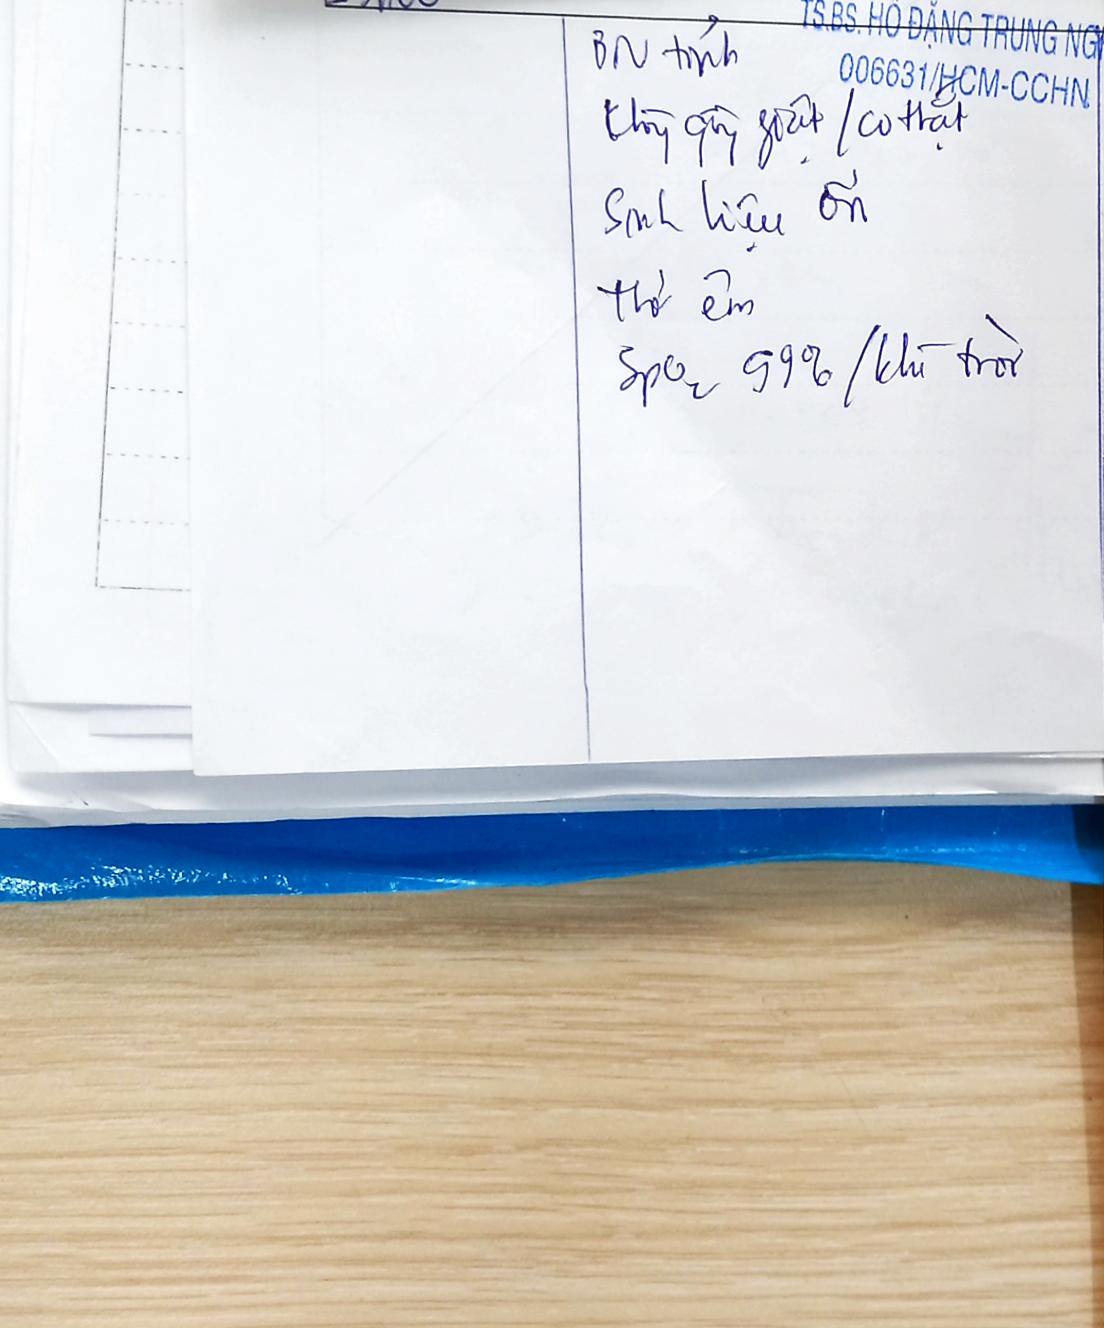 TS.BS. HỒ ĐẶNG TRUNG NG
006631/HCM-CCHN
BN tỉnh
Không gồng giật / co thắt
Sinh hiệu ổn
Thở êm
SpO₂ 99% / khí trời